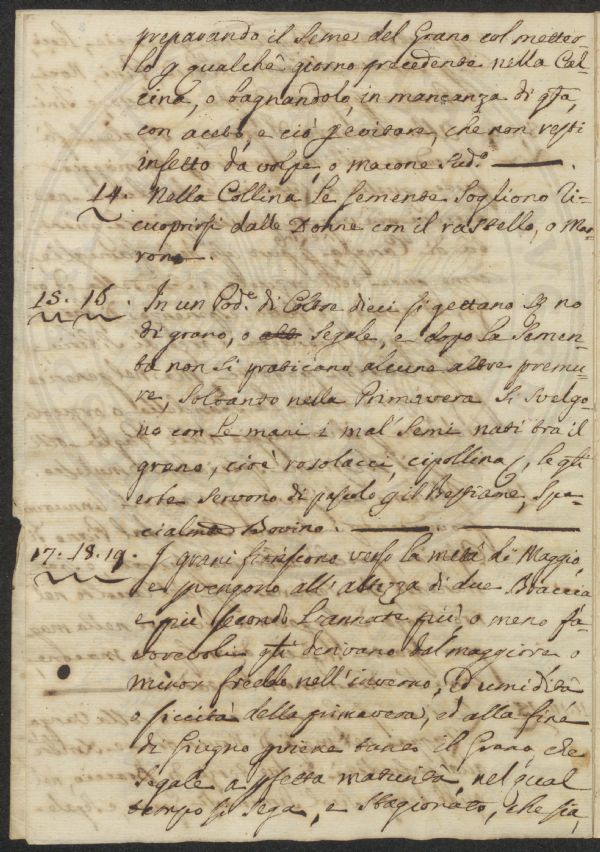 preparando il seme del Grano col metter
lo p qualche giorno precedente nella Cal
cina, o bagnandolo, in mancanza di qta,
con aceto, e ciò p evitare, che non resti
infetto da volpe, o macone sud.º
14. Nella Collina le semente sogliono ri
cuoprirsi dalle Donne con il rastello, o Mar
rone.
15. 16. In un Pod.e di Coltre dieci si gettano
di grano, o segale, e dopo la semen
ta non si praticano alcune altre premu
re, soltanto nella Primavera si svelgo
no con le mani i mal' semi nati tra il
grano, cioè rosolacci, cipollina, le qli
erbe servono di pascolo p il Bestiame, spe
cialmte Bovino.
17. 18. 19. I grani fioriscono verso la metà di Maggio,
e pvengono all'altezza di due Braccia
e più secondo L'annate più o meno fa
vorevoli qli derivano dal maggiore o
minor freddo nell'inverno, ed umidità
o siccità della primavera, ed alla fine
di Giugno pviene tanto il Grano, che
Segale a pfetta maturità, nel qual
tempo si sega, e stagionato, che sia,